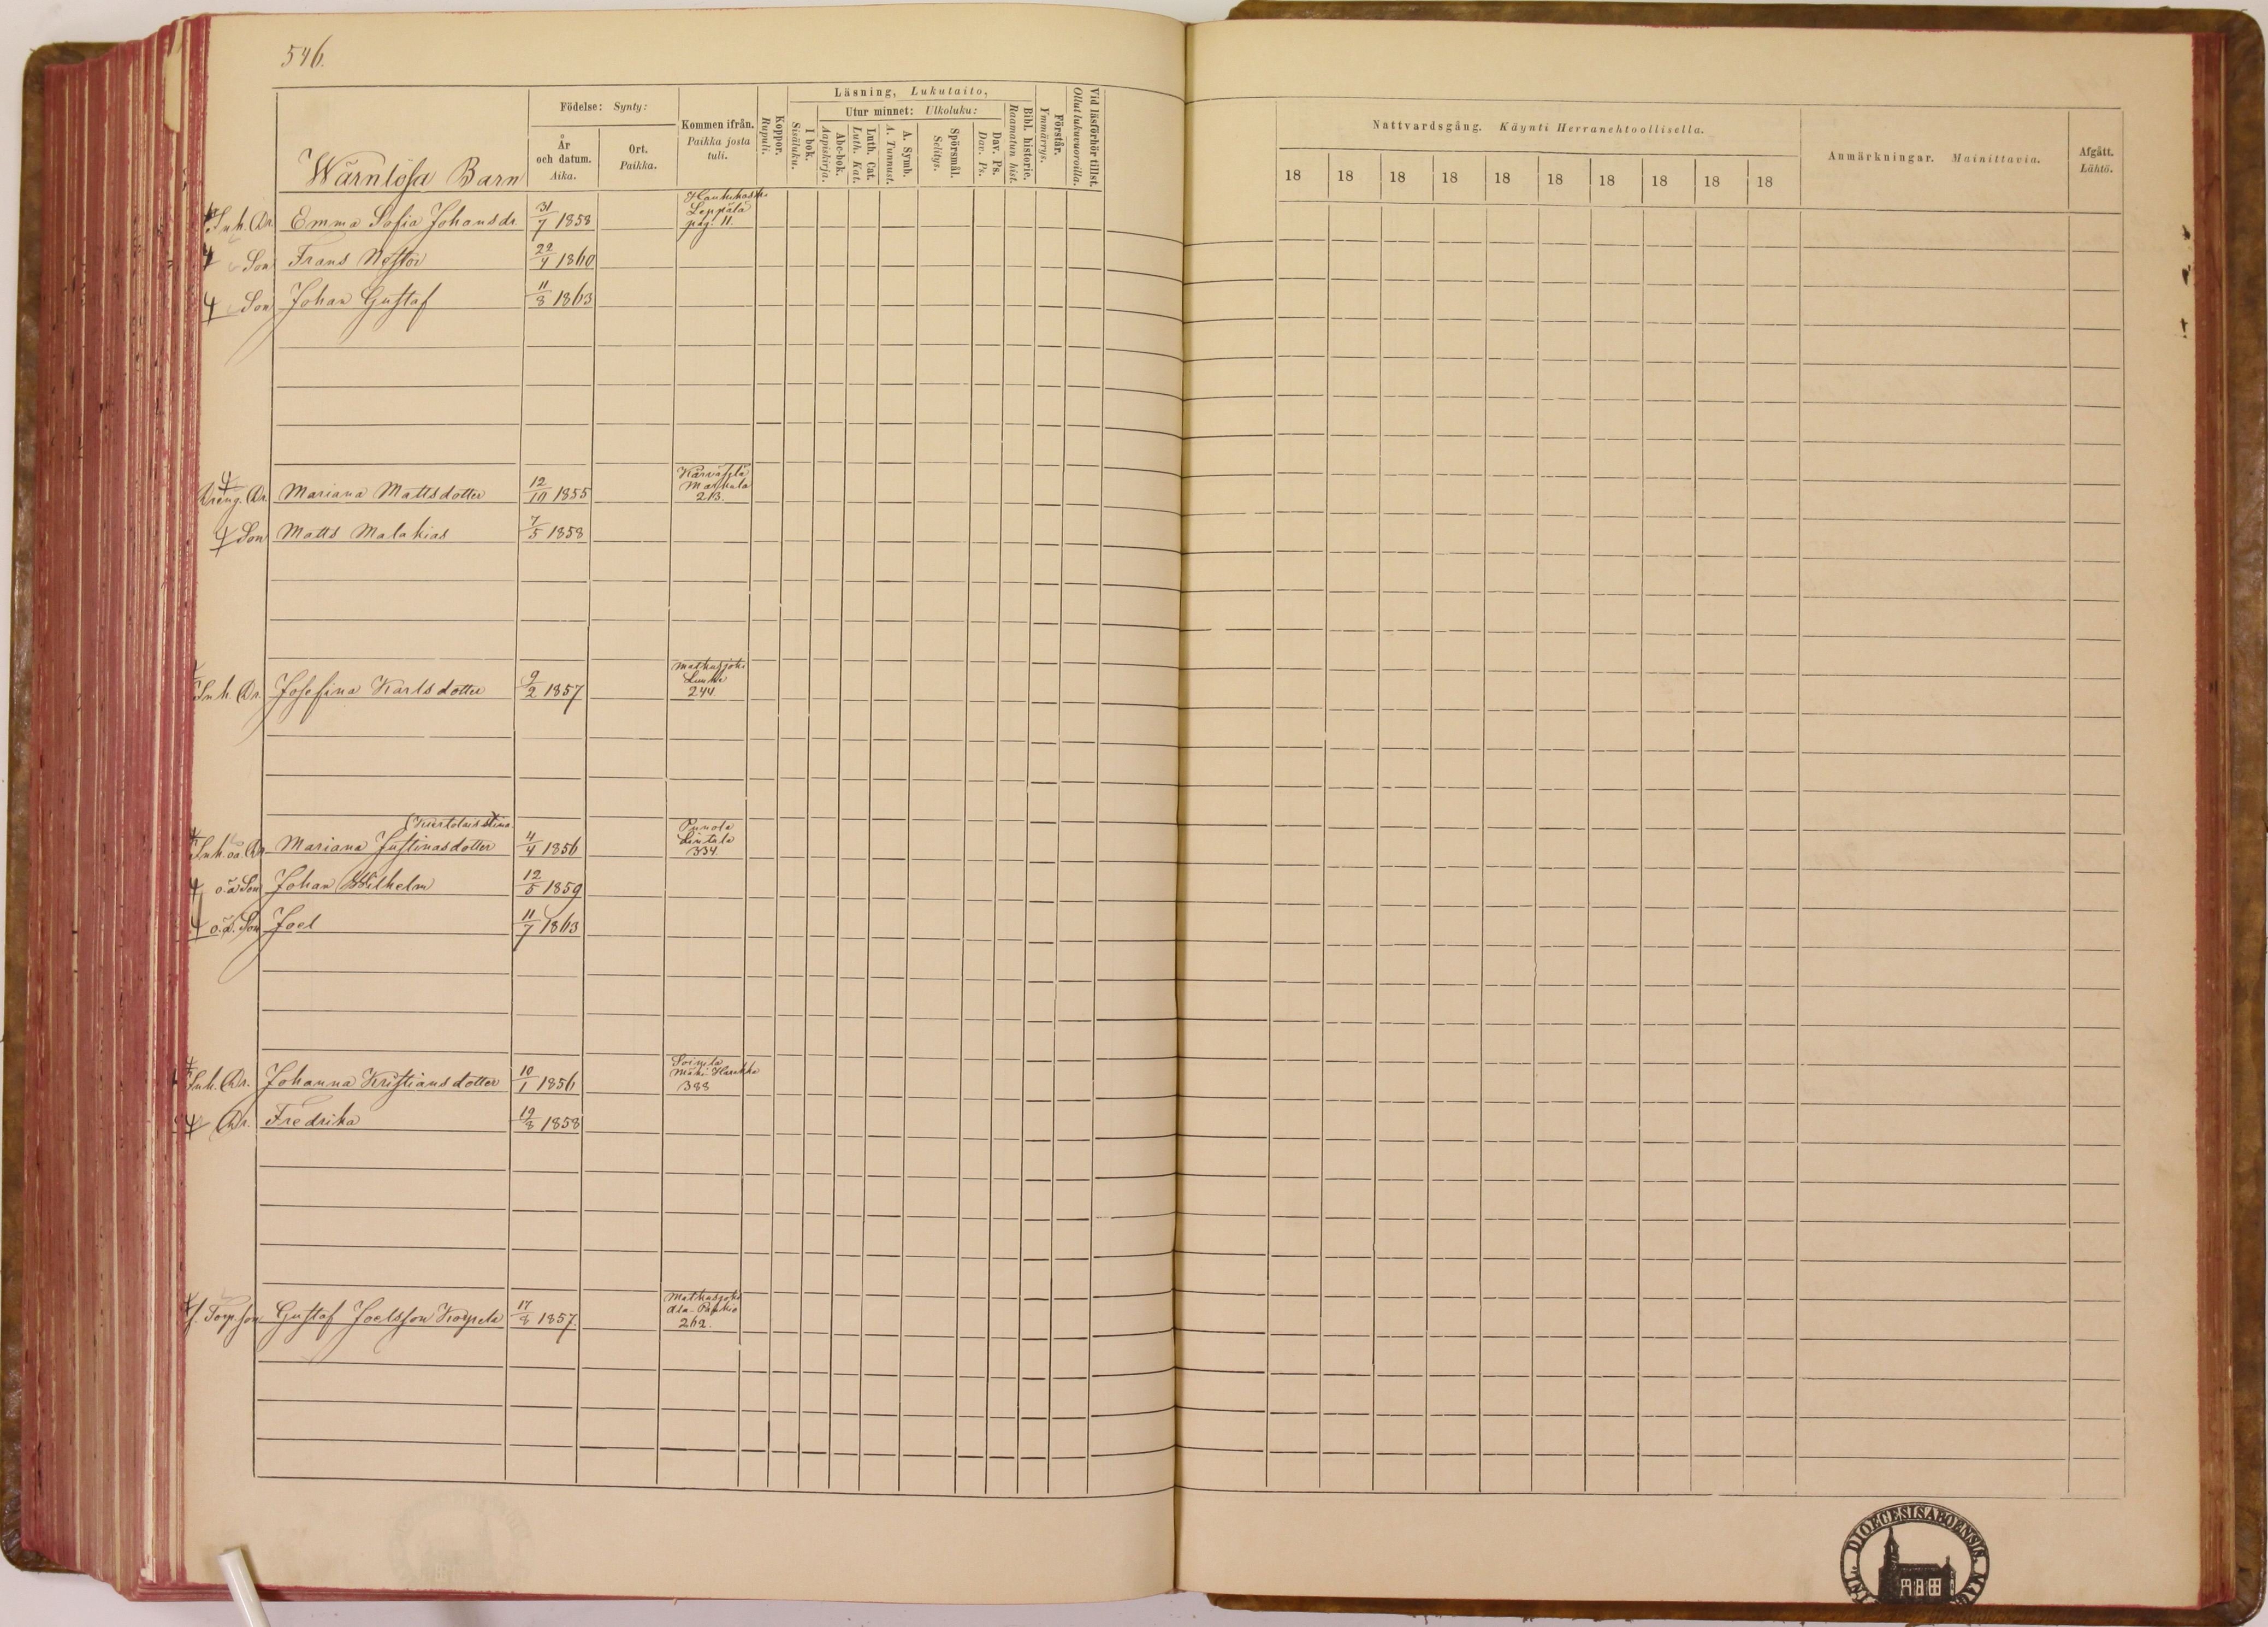 546.
Födelse: Synty:
År och datum. Aika.
Ort. Paikka.
Kommen ifrån. Paikka josta tuli.
Koppor. Rupuli.
Läsning, Lukutaito,
I bok. Sisäluku.
Utur minnet: Ulkoluku:
Abc-bok. Aapiskirja.
Luth. Cat. Luth. Kat.
A. Symb. A. Tunnust.
Spörsmål. Selitys.
Dav. Ps. Dav. Ps.
Bibl. historie. Raamatun hist.
Förstår. Ymmärrys.
Vid läsförhör tillst. Ollut lukuvuoroilla.
Nattvardsgång. Käynti Herranehtoollisella.
18 18 18 18 18 18 18 18 18 18
Anmärkningar. Mainittavia.
Afgått. Lähtö.
Wärnlösa Barn
Inh. Dr. Emma Sofia Johansdr 31/7 1858 Leppälä pag. 11.
Son Frans Nestor 22/4 1860
Son Johan Gustaf 11/8 1863
Dreng. Dr. Mariana Mattsdotter 12/10 1855 213.
Son Matts Malakias 7/5 1858
Inh. Dr. Josefina Karlsdotter 9/2 1857 Matkusjoki 244.
Inh. oä. Dr. Mariana Justinasdotter 4/4 1856 334.
o.ä Son Johan Wilhelm 12/5 1859
o.ä. Son Joel 11/7 1863
Inh. Dr. Johanna Kristiansdotter 10/1 1856 388
Dr. Fredrika 19/8 1858
f. Torp. son Gustaf Joelsson Korpela 17/8 1857. Matkusjoki 262.
DIOECESIS ABOENSIS